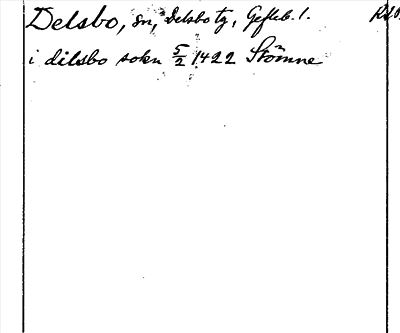 Delsbo, sn, Delsbo tg, Gefleb. l.
i dilsbo sokn 5/2 1422 Stömne